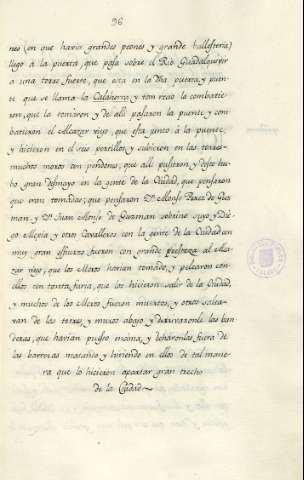 96
nes (en que havia grandes peones y grande ballesteria)
llegó à la puerta, que pasa sobre el Rio Guadalquivir
a una torre fuerte, que esta en la dha puerta, y puen-
te que se llama la Calahorra y tan recio la combatie-
ron, que la tomaron y de alli pasaron la puente y com-
batieron el Alcazar viejo, que esta junto à la puente,
y hicieron en el seis portillos, y subieron en las torres
muchos moros con pendones, que alli pusieron, y desto hu-
bo gran desmayo en la gente de la Ciudad, que pensaron
que eran tomados, que pensaron Dn Alonso Perez de Guz-
man y Dn Juan Alonso de Guzman sobrino suyo, y Die-
go Mexia, y otros Cavalleros con la gente de la Ciudad con
muy gran esfuerzo, fueron con grande presteza al Al-
cazar viejo, que los Moros havian tomado, y pelearon con
ellos con tanta furia, que los hicieron salir de la Ciudad,
y muchos de los Moros fueron muertos, y otros salta-
van de las torres, y muros abajo, y derrivaronle las ban-
deras, que havian puesto encima, y echaronlos fuera de
las barreras matando, y hiriendo en ellos de tal mane-
ra que lo hicieron apartar gran trecho
de la Ciudad